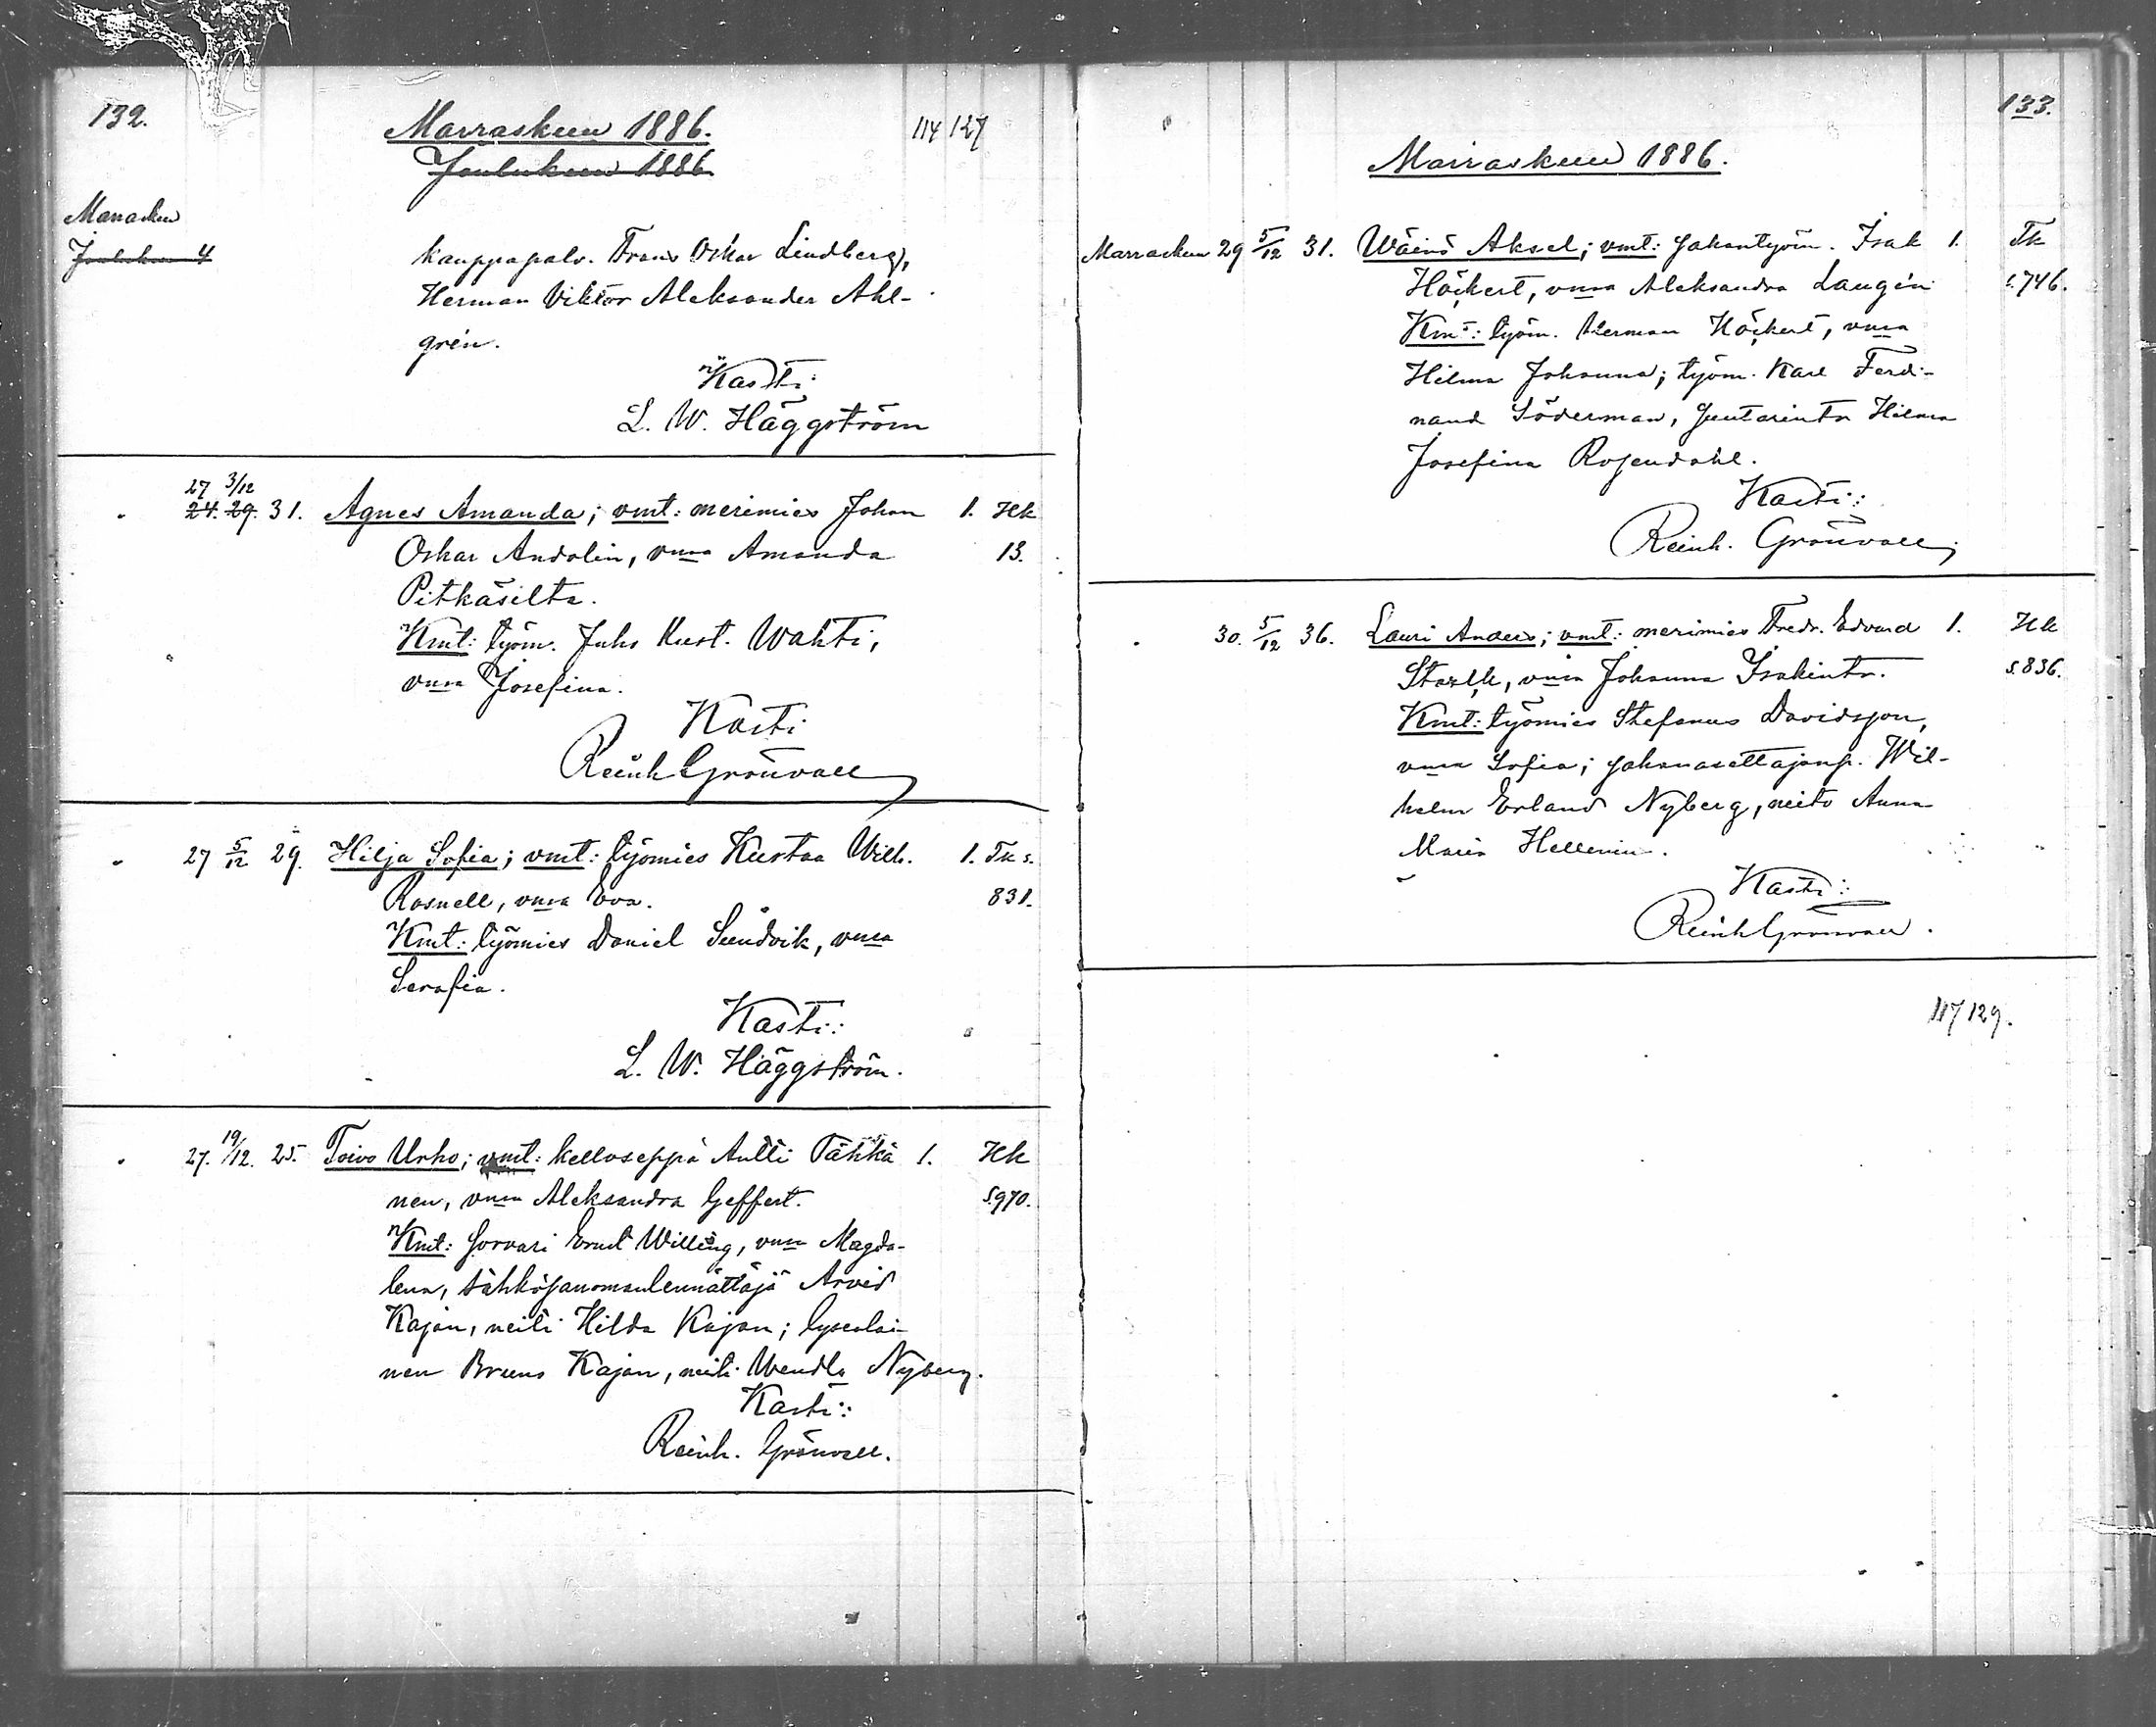 132.
Marraskuu 1886.
114 127
Joulukuu 1886
Marraskuu
Joulukuu 4
kauppapalv. Frans Oskar Lindberg,
Herman Viktor Aleksander Ahl-
grén.
Kasti:
L. W. Häggström
27 3/12
24. 29. 31. Agnes Amanda; vmt: merimies Johan 1. Hk
Oskar Andolin, vmsa Amanda 13.
Pitkäsilta.
Kmt: työm. Juho Kust. Wahti,
vmsa Josefina.
Kasti
Reinh Grönvall
27 5/12 29. Hilja Sofia; vmt: työmies Kustaa Wilh. 1. Tk s.
Rosnell, vmsa Eva. 831.
Kmt: työmies Daniel Sundvik, vmsa
Serafia.
Kasti:
L. W. Häggström.
27. 19/12. 25. Toivo Urho; vmt: kelloseppä Antti Tähkä 1. Hk
nen, vmsa Aleksandra Geffert. s.970.
Kmt: sorvari Ernst Willing, vmsa Magda-
lena, sähkösanomanlennättäjä Arvid
Kajan, neiti Hilda Kajan; lyseolai-
nen Bruno Kajan, neiti Wendla Nyberg.
Kasti:
Reinh. Grönvall.
133.
Marraskuu 1886.
Marraskuu 29 5/12 31. Wäinö Aksel; vmt: sahantyöm. Isak 1. Tk
Höckert, vmsa Aleksandra Laugén s.746.
Kmt: työm. Herman Höckert, vmsa
Hilma Johanna; työm. Karl Ferdi-
nand Söderman, Juutarintr Hilma
Josefina Rosendahl.
Kasti:
Reinh. Grönvall
30. 5/12 36. Lauri Anders; vmt: merimies Fredr. Edvard 1. Hk
Starck, vmsa Johanna Isakintr. s.836.
Kmt: työmies Stefanus Davidsson,
vmsa Sofia; sahanasettajanp. Wil-
helm Erland Nyberg, neito Anna
Maria Hellenin.
Kasti:
Reinh Grönvall.
117 129.